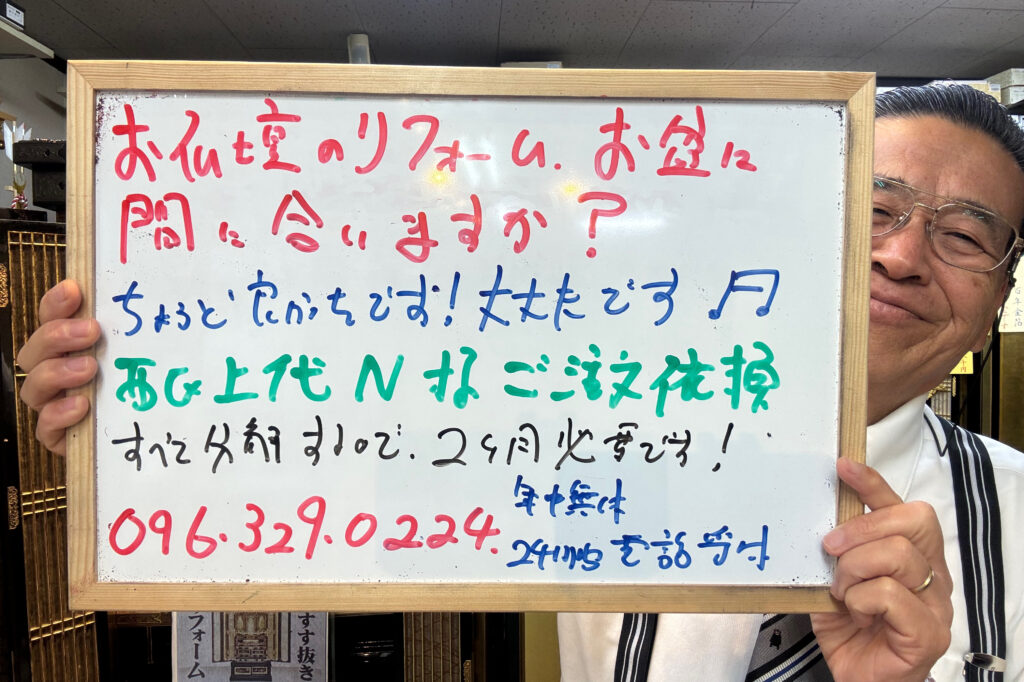 お仏壇のリフォーム.お盆に
間に合いますか?
ちょうど六か月です!大丈夫です♫
西区上代N様ご注文依頼
すべて分解するので.2ヶ月必要です!
096.329.0224.
年中無休
24時間電話受付
すす抜き
フォーム
年金箔